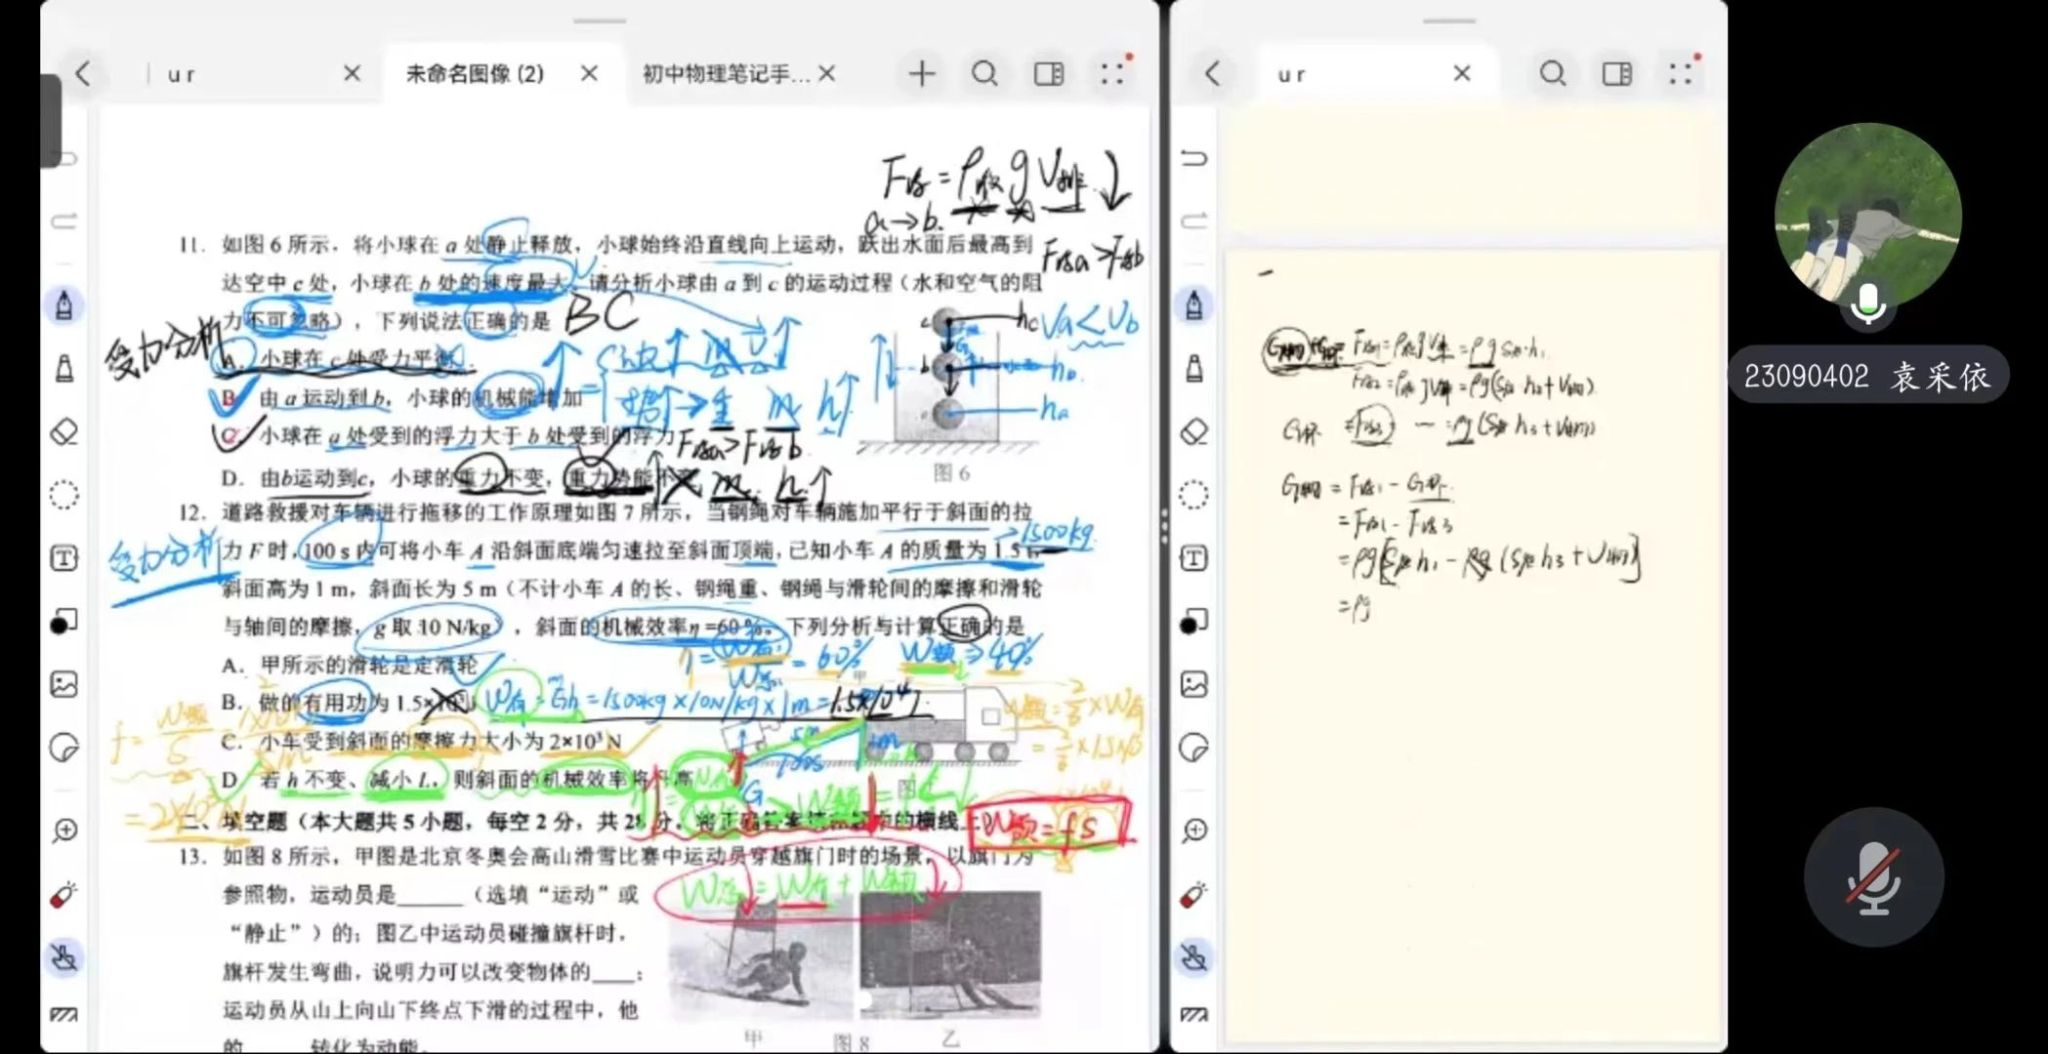 u r
未命名图像 (2)
初中物理笔记手...
F浮=ρ液gV排↓
a→b.
11. 如图6所示，将小球在a处静止释放，小球始终沿直线向上运动，跃出水面后最高到
F浮a>F浮b
达空中c处，小球在b处的速度最大。请分析小球由a到c的运动过程（水和空气的阻
力不可忽略），下列说法正确的是 BC
Va<Vb
受力分析
A. 小球在c处受力平衡
B. 由a运动到b，小球的机械能增加
C. 小球在a处受到的浮力大于b处受到的浮力 F浮a>F浮b
D. 由b运动到c，小球的重力不变，重力势能不变 m h↑
c
b
hc
hb
ha
图6
12. 道路救援对车辆进行拖移的工作原理如图7所示，当钢绳对车辆施加平行于斜面的拉
→1500kg
受力分析
力F时，100 s内可将小车A沿斜面底端匀速拉至斜面顶端，已知小车A的质量为1.5 t，
斜面高为1 m，斜面长为5 m（不计小车A的长、钢绳重、钢绳与滑轮间的摩擦和滑轮
与轴间的摩擦，g取10 N/kg），斜面的机械效率η=60%。下列分析与计算正确的是
A. 甲所示的滑轮是定滑轮
η=W有/W总=60%
W额→40%
B. 做的有用功为1.5× J
W有=Gh=1500kg×10N/kg×1m=1.5×10⁴J.
C. 小车受到斜面的摩擦力大小为2×10³N
f=W额/S
=2×10³N
5m
1m
100s
G
D. 若h不变、减小L，则斜面的机械效率将升高
二、填空题（本大题共5小题，每空2分，共28分，将正确答案填在题后的横线上）
W额=fS
13. 如图8所示，甲图是北京冬奥会高山滑雪比赛中运动员穿越旗门时的场景，以旗门为
参照物，运动员是______（选填“运动”或
W总=W有+W额
“静止”）的；图乙中运动员碰撞旗杆时，
旗杆发生弯曲，说明力可以改变物体的____；
运动员从山上向山下终点下滑的过程中，他
的 转化为动能。
甲
图8
乙
u r
F浮1=ρ液gV排=ρgS h₁
F浮2=ρ液gV排=ρg(S h₂+V)
=F浮3 =ρg(S h₃+V)
=F浮1-G
=F浮1-F浮3
=ρg[S h₁-ρg(S h₃+V)]
=ρg
23090402 袁采依